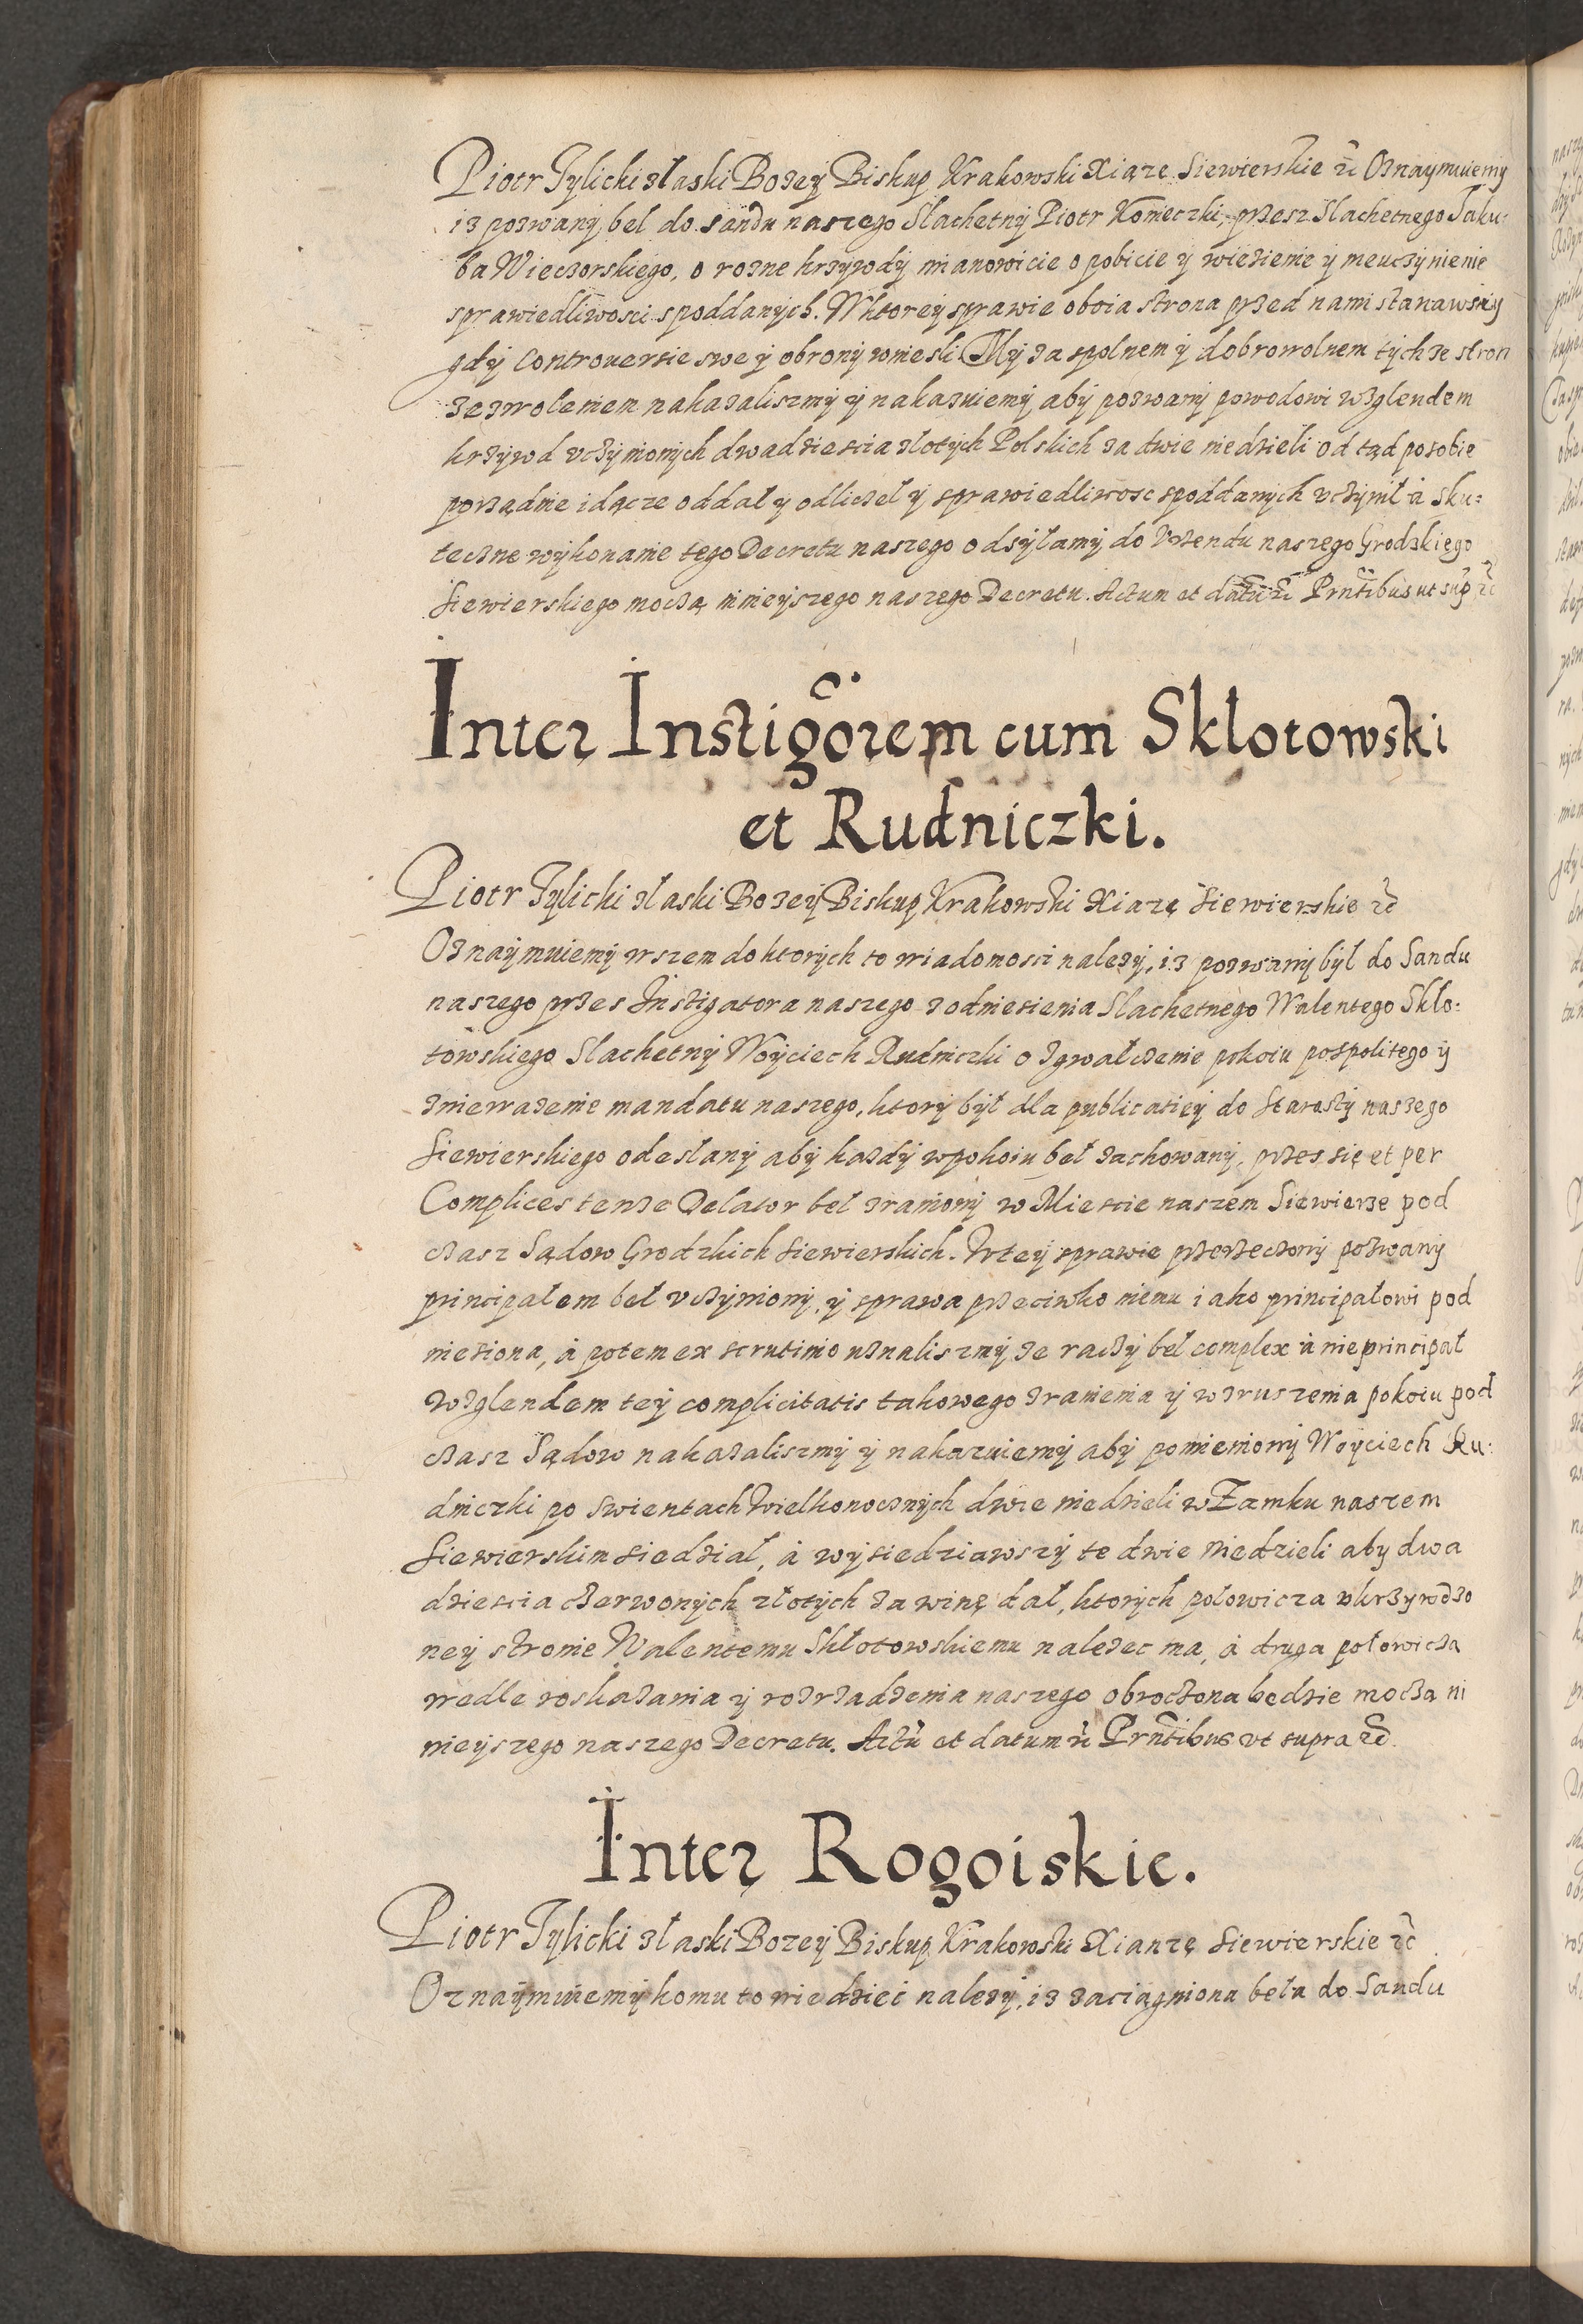 Piotr Tylicki złaski Bozeÿ Biskup Krakowski Xiąze Siewierskie &c Oznaymuiemÿ
iz pozwanÿ bel do sandu naszego Slachetnÿ Piotr Konieczki, przesz Slachetnego Jaku=
ba Wieczorskiego, o rozne krzÿwdÿ mianowicie o pobicie ÿ wiezienie ÿ nieuczÿnienie
sprawiedliwosci spoddanÿch. Wktoreÿ sprawie oboia strona przed nami stanawszÿ
gdÿ controuersie swe ÿ obronÿ wniesli. Mÿ za spolnem ÿ dobrowolnem tÿchze stron
zezwoleniem nakazaliszmÿ ÿ nakazuiemÿ abÿ pozwanÿ powodowi wzglendem
krzÿwd vczÿnionÿch dwadziescia zlotÿch Polskich za dwie niedzieli od tąd posobie
porządnie idącze oddał ÿ odliczel ÿ sprawiedliwosc spoddanÿch vczÿnił à sku=
teczne wÿkonanie tego Decretu naszego odsÿłamÿ do Vrzendu naszego Grodzkięgo
Siewierskiego moczą ninieÿszego naszego Decretu. Actum et datũ &c Prñtibus ut sup &c
Inter Instigõrem cum Skłotowski
et Rudniczki.
Piotr Tylicki złaski Bozeÿ Biskup Krakowski Xiazę Siewierskie &c
Oznaÿmuiemÿ wszem doktorÿch to wiadomosci nalezÿ, iz pozwanÿ bÿł do Sandu
naszego przes Instigatora naszego zodniesienia Slachetnego Walentego Skło=
towskiego Slachetnÿ Woÿciech Rudniczki o zgwałczenie pokoiu pospolitego ÿ
zniewazenie mandatu naszego, ktorÿ bÿł dla publicatieÿ do Starostÿ naszego
Siewierskiego odesłanÿ abÿ kazdÿ wpokoiu beł zachowanÿ, przes się et per
Complices tenze Delator beł zranionÿ w Miescie naszem Siewierze pod
czasz Sądow Grodzkich Siewierskich. Wteÿ sprawie przerzeczonÿ pozwanÿ
principałem beł vczÿnionÿ, ÿ sprawa przeciwko niemu iako principałowi pod
niesiona, à potem ex scrutinio uznaliszmÿ ze raczÿ beł complex à nie principał
wzglendem teÿ complicitatis takowego zranienia ÿ wzruszenia pokoiu pod
czasz Sądow nakazaliszmÿ ÿ nakazuiemÿ abÿ pomienionÿ Woÿciech Ru=
dniczki po swientach Wielkonocznÿch dwie niedzieli w Zamku naszem
Siewierskim siedział, à wÿsiedziawszÿ te dwie niedzieli aby dwa
dziescia czerwonÿch złotÿch za winę dał, ktorÿch połowicza vkrzywdzo
neÿ stronie Walentemu Skłotowskiemu nalezec ma, à druga połowicza
wedle roskazania ÿ rozrządzenia naszego obroczona będzie moczą ni
nieyszego naszego Decretu. Actũ et datum &c Prñtibus vt supra &c.
Inter Rogoiskie.
Piotr Tylicki złaski Bozeÿ Biskup Krakowski Xianzę Siewierskie &c
Oznaÿmuiemÿ komu to wiedzieć nalezÿ, iz zaciągniona beła do Sandu